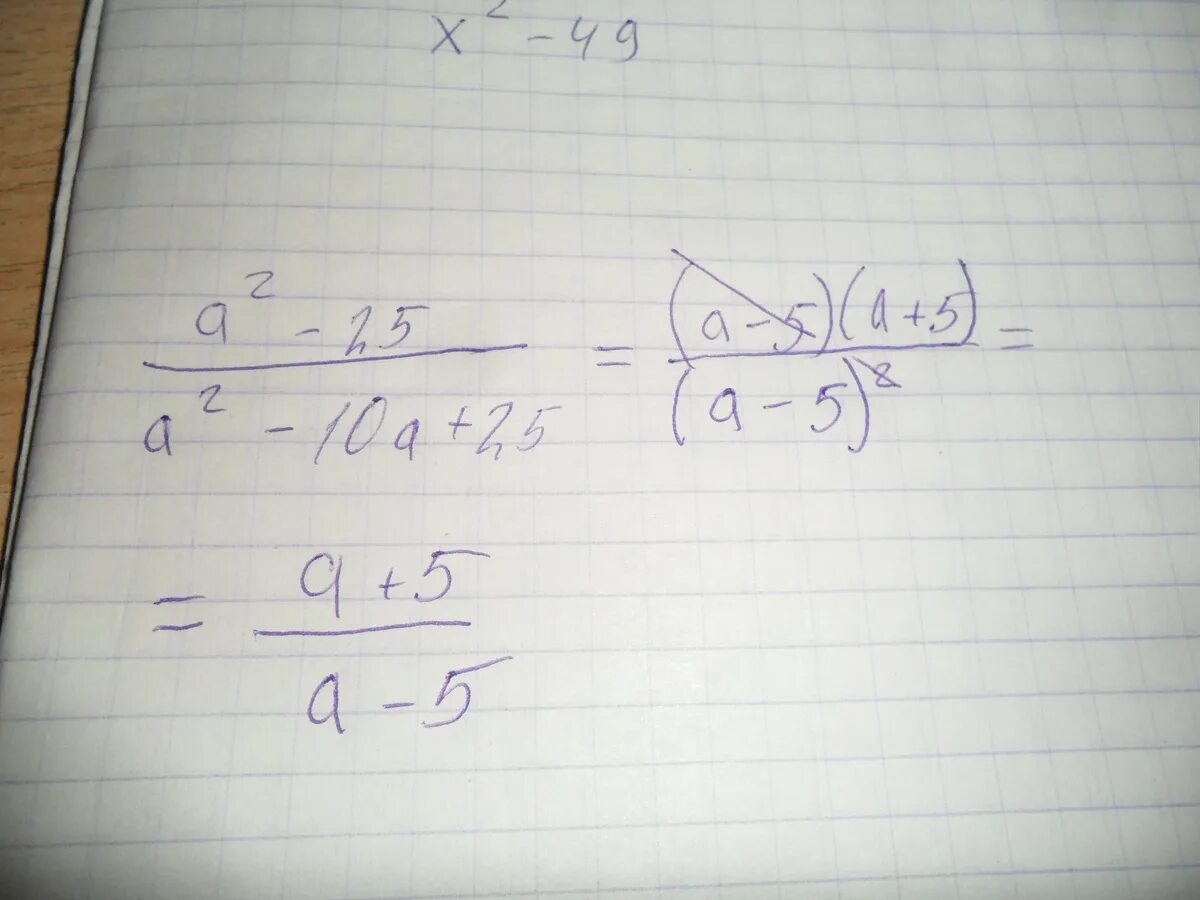 x² - 49
a² - 25 / a² - 10a + 25 = (a - 5)(a + 5) / (a - 5)² =
= a + 5 / a - 5